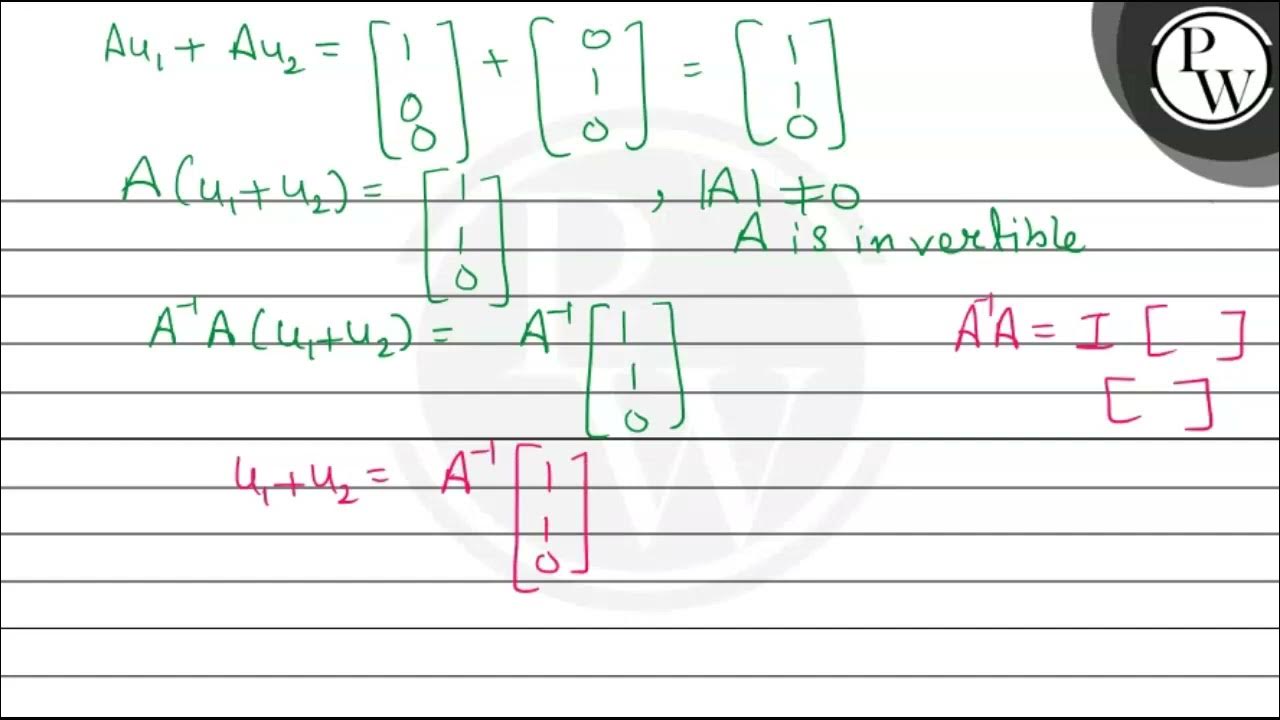 Au₁ + Au₂ = [1 0 0] + [0 1 0] = [1 1 0]
PW
A(u₁+u₂) = [1 1 0] , |A| ≠ 0
A is invertible
A⁻¹A(u₁+u₂) = A⁻¹ [1 1 0]
A⁻¹A = I [ ]
[ ]
u₁+u₂ = A⁻¹ [1 1 0]
PW